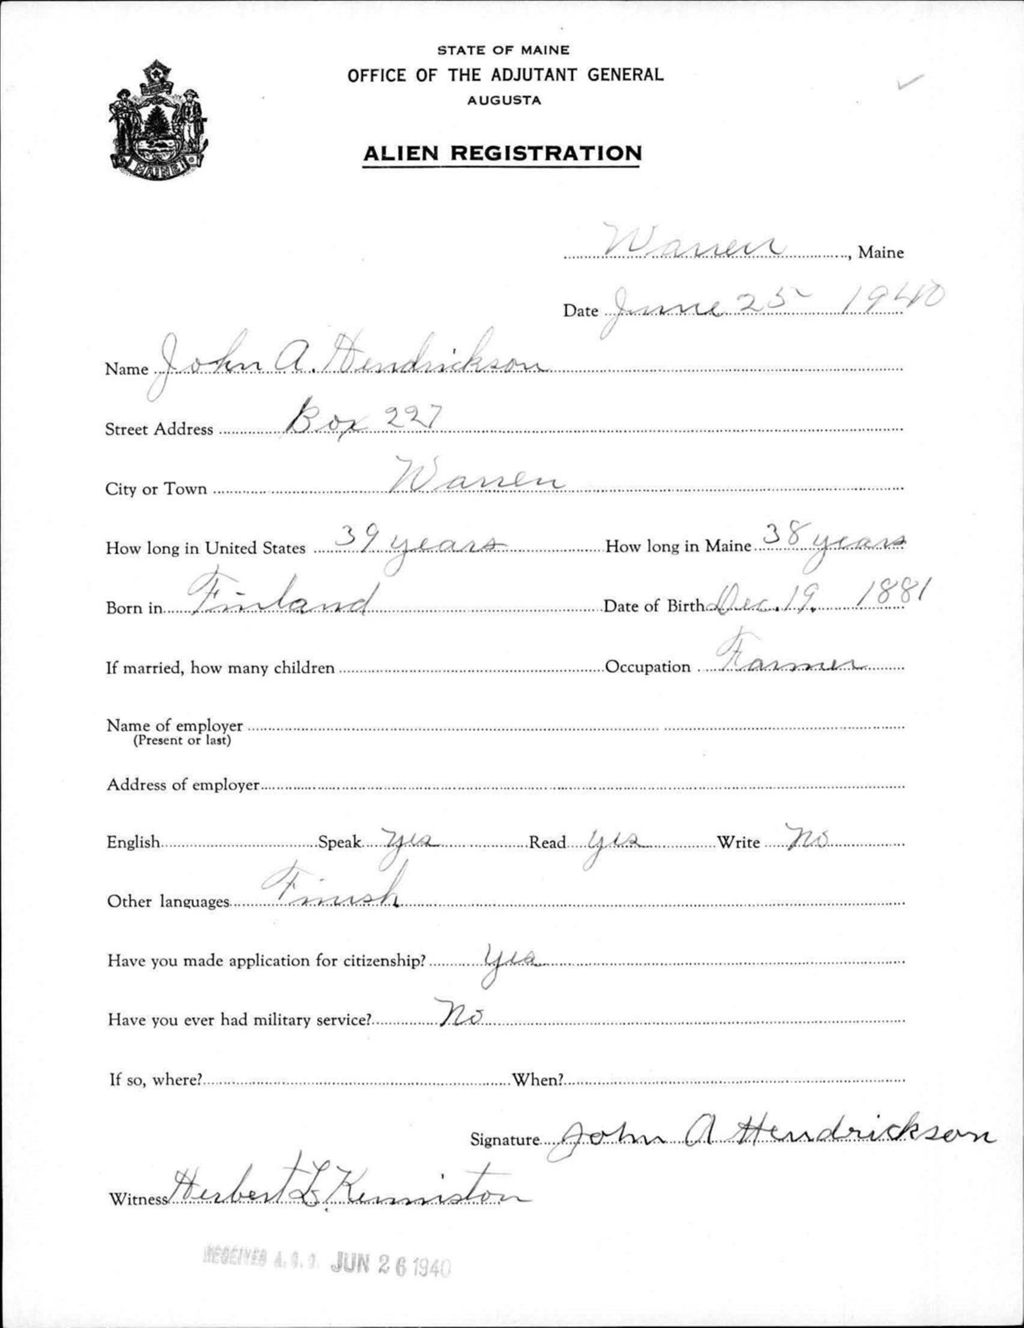 STATE OF MAINE
OFFICE OF THE ADJUTANT GENERAL
AUGUSTA
ALIEN REGISTRATION
MAINE
Warren, Maine
Date June 25 1940
Name John A. Hendrickson
Street Address Box 227
City or Town Warren
How long in United States 39 years How long in Maine 38 years
Born in Finland Date of Birth Dec. 19. 1881
If married, how many children Occupation Farmer
Name of employer
(Present or last)
Address of employer
English Speak yes Read yes Write No
Other languages Finish
Have you made application for citizenship? yes
Have you ever had military service? No
If so, where? When?
Signature John A Hendrickson
Witness Herbert L. Kenniston
RECEIVED A.G.O. JUN 26 1940